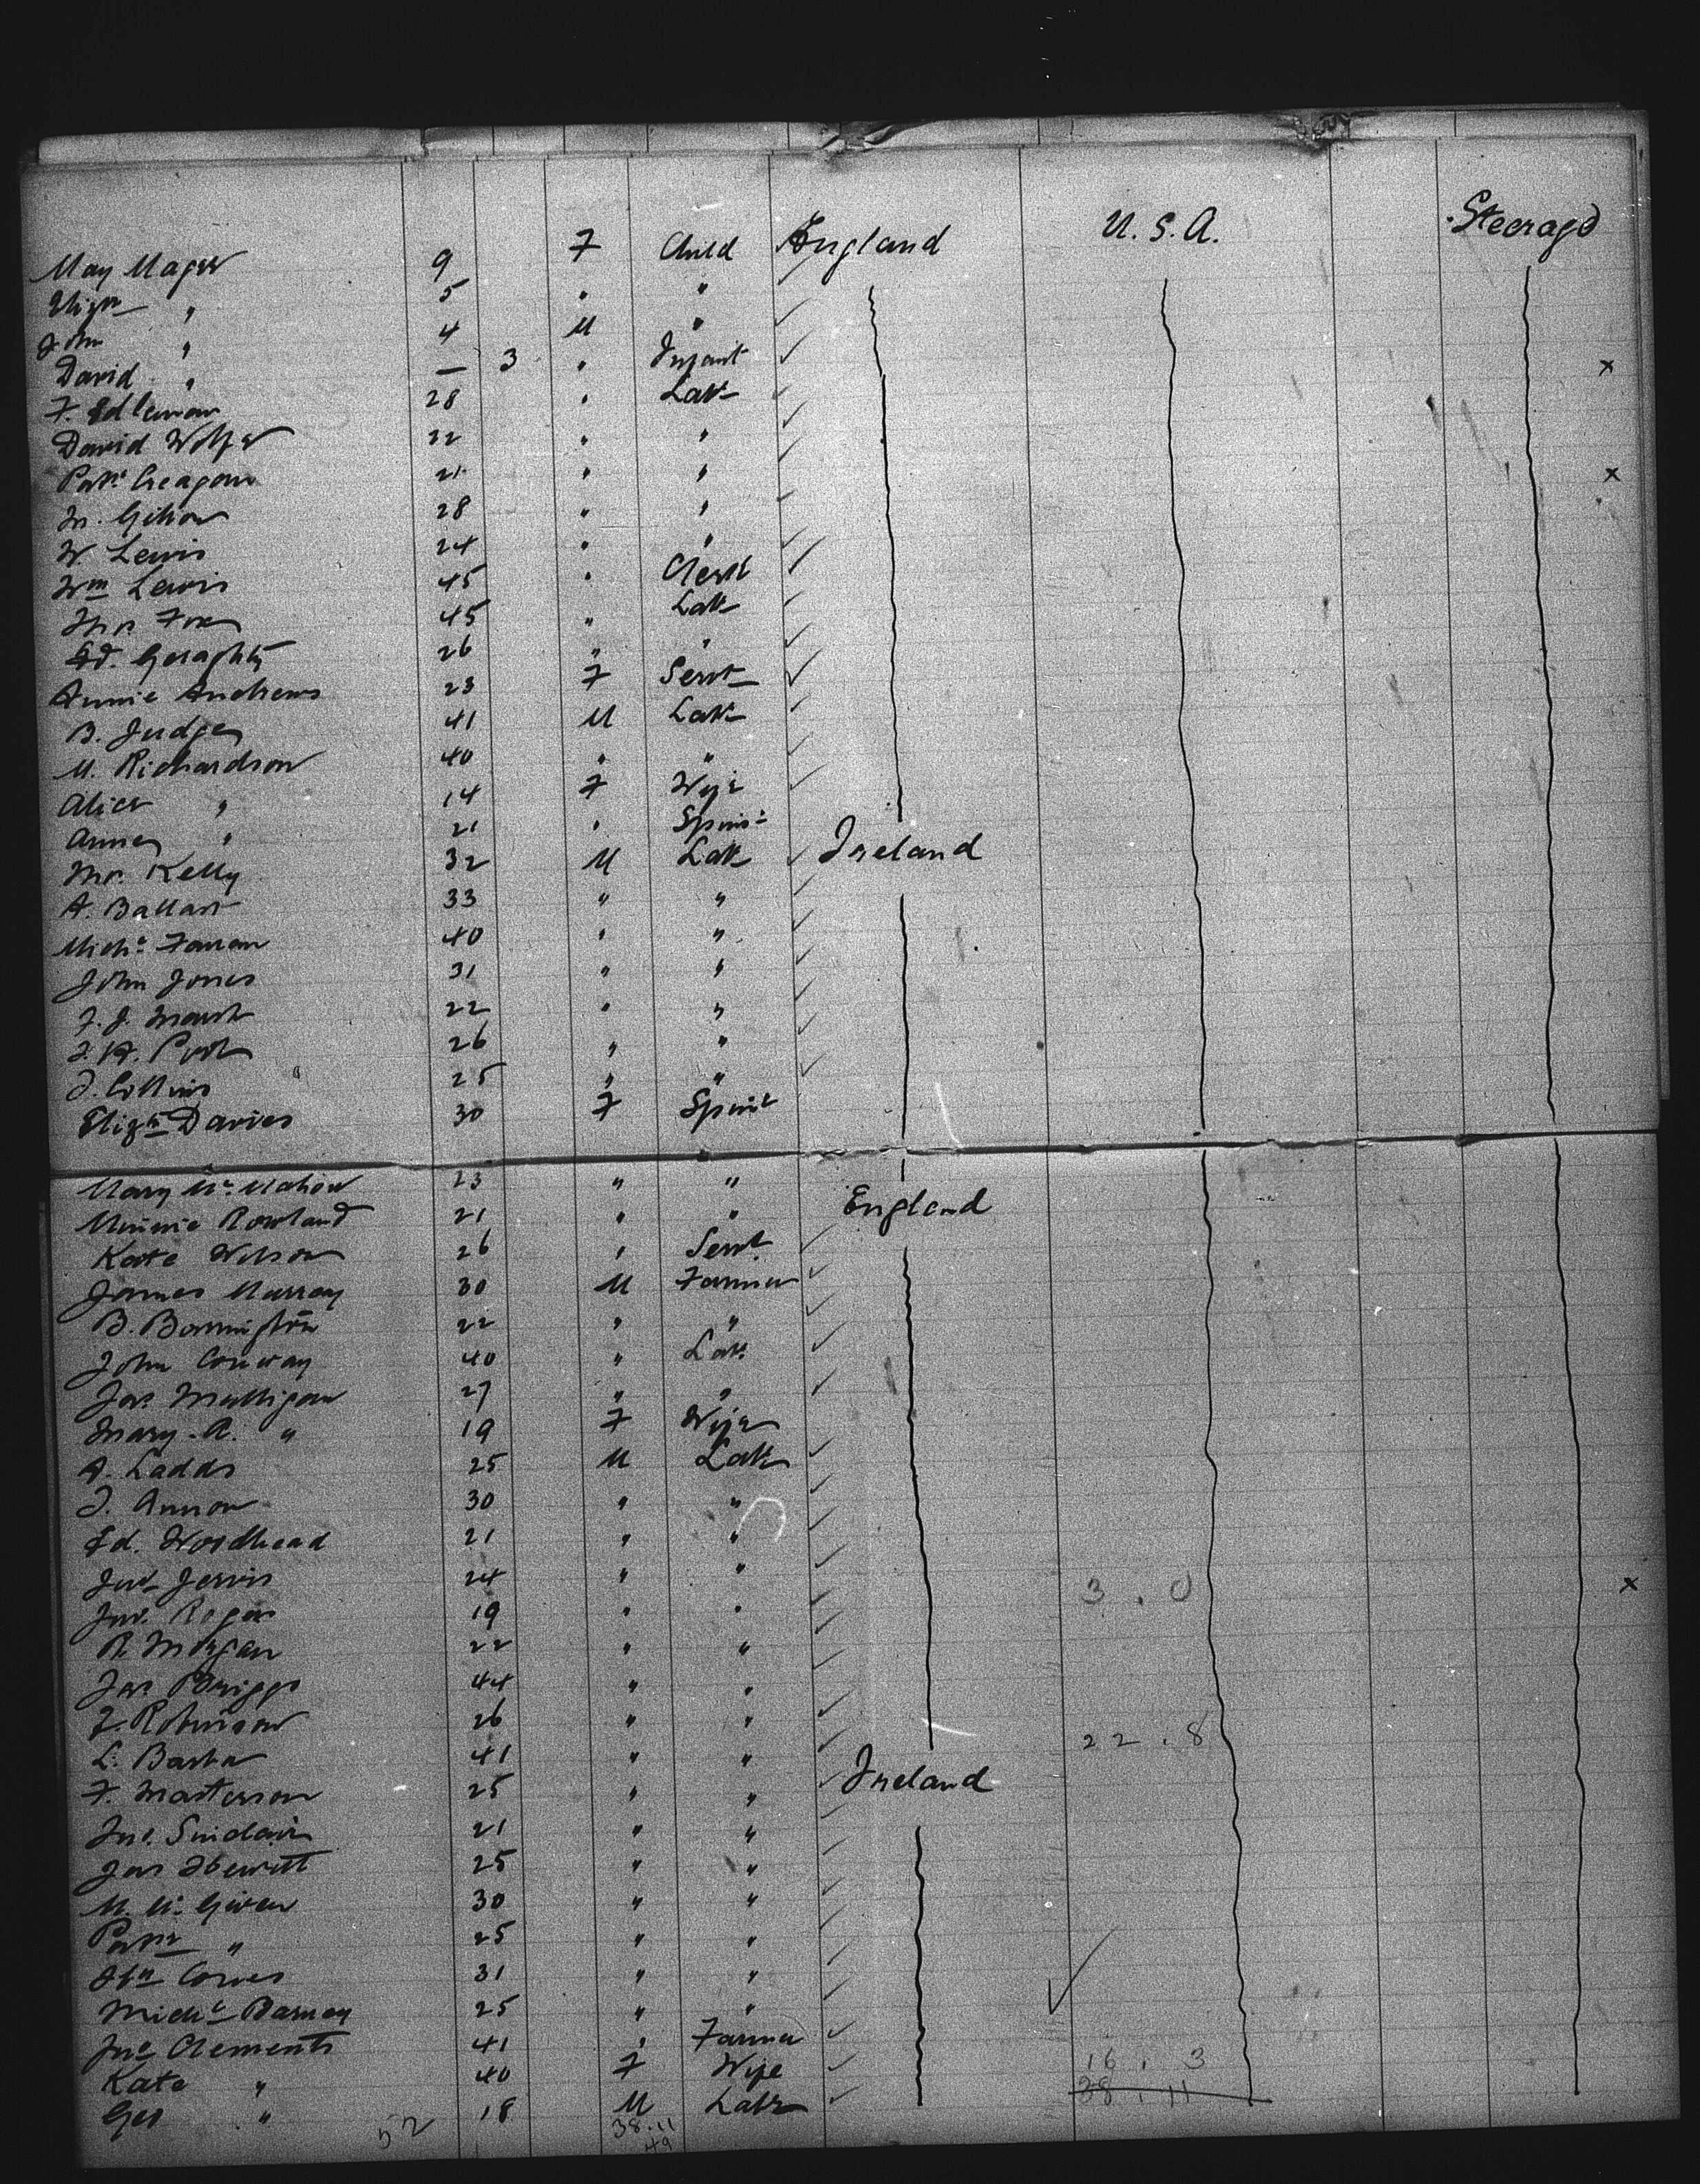 May Mager 9 F Child England U.S.A. Steerage
Eliza " 5 " "
John " 4 M "
David " — 3 " Infant ×
F. 28 " Labr
David Wolfe 22 " "
Patk Creagan 21 " " ×
M. Gibson 28 " "
W. Lewis 24 " "
Wm Lewis 45 " Clerk
Thos Fox 45 " Labr
Ed. Geraghty 26 " "
Annie Andrews 23 F Servt
B. Judge 41 M Labr
M. Richardson 40 " "
Alice " 14 F Wife
Annie " 21 " Spinsr
Mr. Kelly 32 M Labr Ireland
A. Ballast 33 " "
Michl Farran 40 " "
John Jones 31 " "
F. J. Marsh 22 " "
26 " "
J. Collins 25 " "
Elizth Davies 30 F Spinsr
Mary McMahon 23 " "
Minnie Rowland 21 " " England
Kate Wilson 26 " Servt
James Murray 30 M Farmer
B. Bonnington 22 " "
John Conway 40 " Labr
Jas Mulligan 27 " "
Mary A. " 19 F Wife
A. Ladds 25 M Labr
J. Annon 30 " "
Ed. Woodhead 21 " "
Jno Jervis 24 " " 3.0 ×
Jno. Roger 19 " "
R. Morgan 22 " "
Jas Briggs 44 " "
F. Robinson 26 " " 22.8
L. 41 " "
F. Masterson 25 " " Ireland
Jno. Sinclair 21 " "
Jas Hewitt 25 " "
M. McGiven 30 " "
Patk " 25 " "
31 " "
Michl Barney 25 " "
Jno Clements 41 " Farmer
Kate " 40 F Wife 16.3
Geo " 18 M Labr 38.11
52 38.11
49